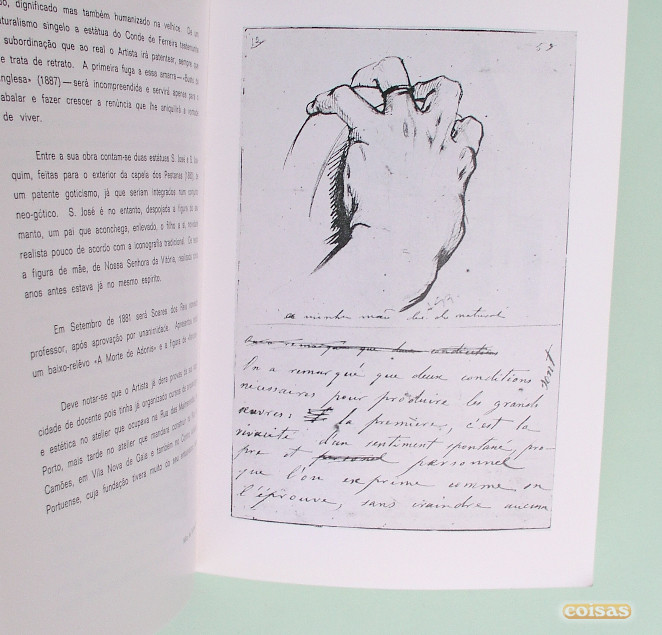 do, dignificado mas também humanizado na velhice. De um
naturalismo singelo a estátua do Conde de Ferreira testemunha
subordinação que ao real o Artista irá patentear, sempre que
se trata de retrato. A primeira fuga a essa amarra—«Busto da
Inglesa» (1887)—será incompreendida e servirá apenas para o
abalar e fazer crescer a renúncia que lhe aniquilará a vontade
de viver.
Entre a sua obra contam-se duas estátuas S. José e S. Joa-
quim, feitas para o exterior da capela dos Pestanas (1880), de
um patente goticismo, já que seriam integrados num conjunto
neo-gótico. S. José é no entanto, despojada a figura do seu
manto, um pai que aconchega, enlevado, o filho a si,
realista pouco de acordo com a iconografia tradicional. De
a figura de mãe, de Nossa Senhora da Vitória, realizada
anos antes estava já no mesmo espírito.
Em Setembro de 1881 será Soares dos Reis nomeado
professor, após aprovação por unanimidade. Apresentou
um baixo-relêvo «A Morte de Adonis» e a figura de
Deve notar-se que o Artista já dera provas da sua
cidade de docente pois tinha já organizado cursos de
e estética no atelier que ocupava na Rua das Malmerendas,
Porto, mais tarde no atelier que mandara construir na
Camões, em Vila Nova de Gaia e também no Centro
Portuense, cuja fundação tivera muito do seu
a minha mão do natural
que deux conditions
On a remarqué que deux conditions sont
nécessaires pour produire les grands
œuvres: la première, c'est la
vivacité d'un sentiment spontané, pro-
pre et personnel personnel
que l'on exprime comme on
l'éprouve, sans craindre aucun
coisas